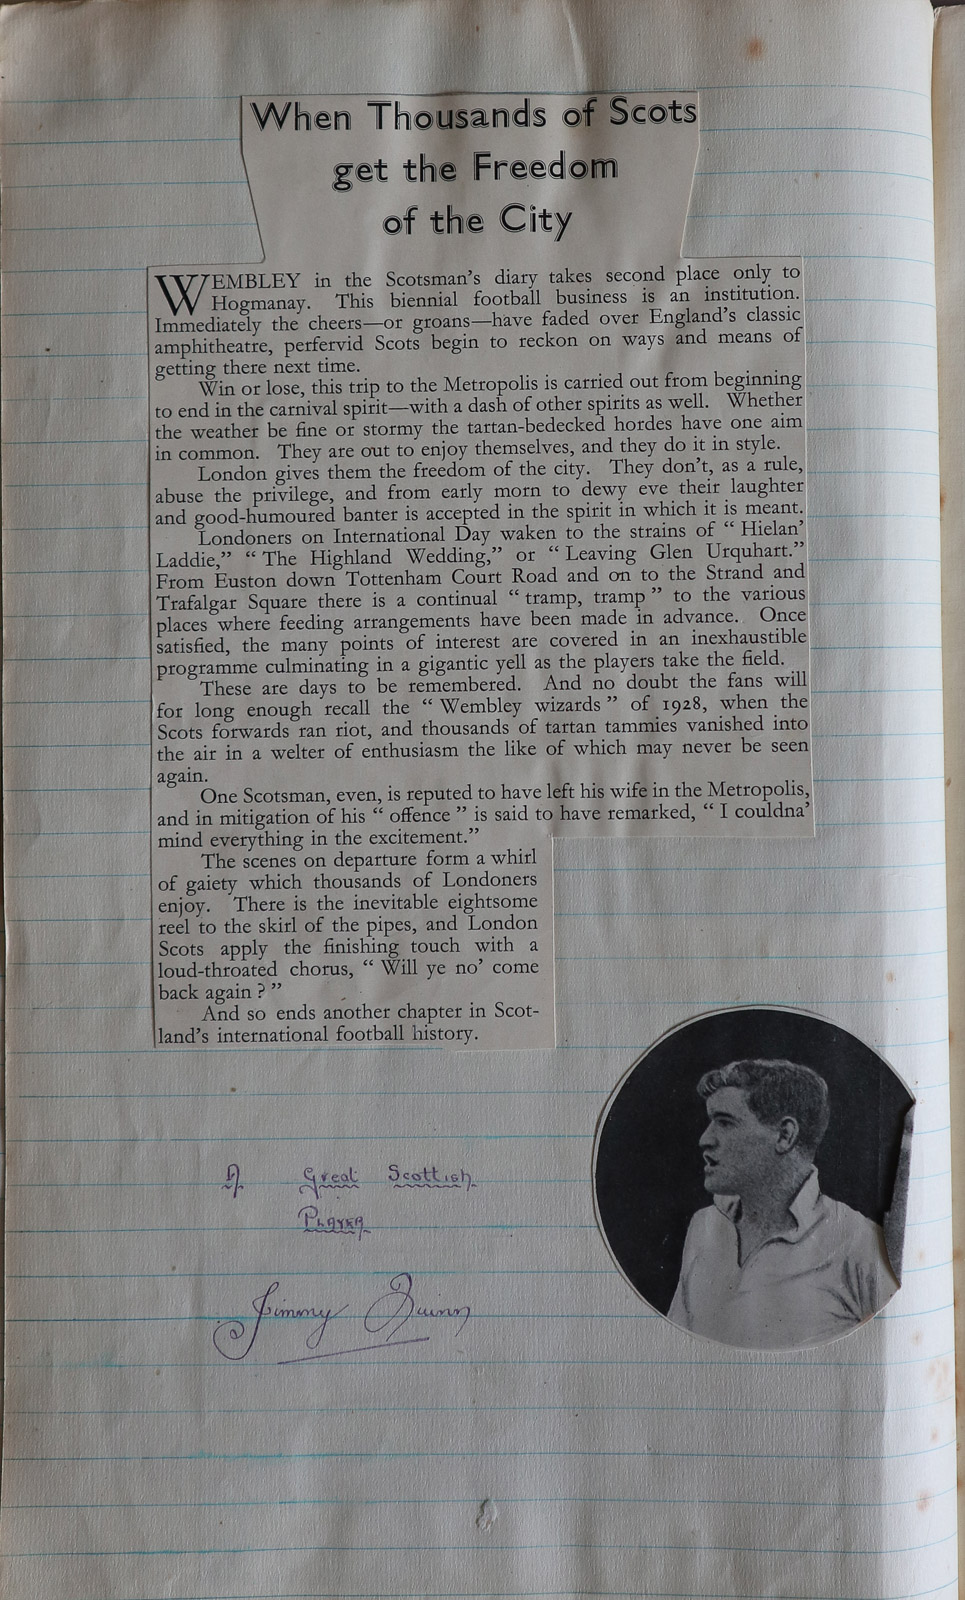 When Thousands of Scots
get the Freedom
of the City
WEMBLEY in the Scotsman's diary takes second place only to
Hogmanay. This biennial football business is an institution.
Immediately the cheers—or groans—have faded over England's classic
amphitheatre, perfervid Scots begin to reckon on ways and means of
getting there next time.
Win or lose, this trip to the Metropolis is carried out from beginning
to end in the carnival spirit—with a dash of other spirits as well. Whether
the weather be fine or stormy the tartan-bedecked hordes have one aim
in common. They are out to enjoy themselves, and they do it in style.
London gives them the freedom of the city. They don't, as a rule,
abuse the privilege, and from early morn to dewy eve their laughter
and good-humoured banter is accepted in the spirit in which it is meant.
Londoners on International Day waken to the strains of “ Hielan'
Laddie,” “ The Highland Wedding,” or “ Leaving Glen Urquhart.”
From Euston down Tottenham Court Road and on to the Strand and
Trafalgar Square there is a continual “ tramp, tramp ” to the various
places where feeding arrangements have been made in advance. Once
satisfied, the many points of interest are covered in an inexhaustible
programme culminating in a gigantic yell as the players take the field.
These are days to be remembered. And no doubt the fans will
for long enough recall the “ Wembley wizards ” of 1928, when the
Scots forwards ran riot, and thousands of tartan tammies vanished into
the air in a welter of enthusiasm the like of which may never be seen
again.
One Scotsman, even, is reputed to have left his wife in the Metropolis,
and in mitigation of his “ offence ” is said to have remarked, “ I couldna'
mind everything in the excitement.”
The scenes on departure form a whirl
of gaiety which thousands of Londoners
enjoy. There is the inevitable eightsome
reel to the skirl of the pipes, and London
Scots apply the finishing touch with a
loud-throated chorus, “ Will ye no' come
back again ? ”
And so ends another chapter in Scot-
land's international football history.
A Great Scottish
Player
Jimmy Quinn